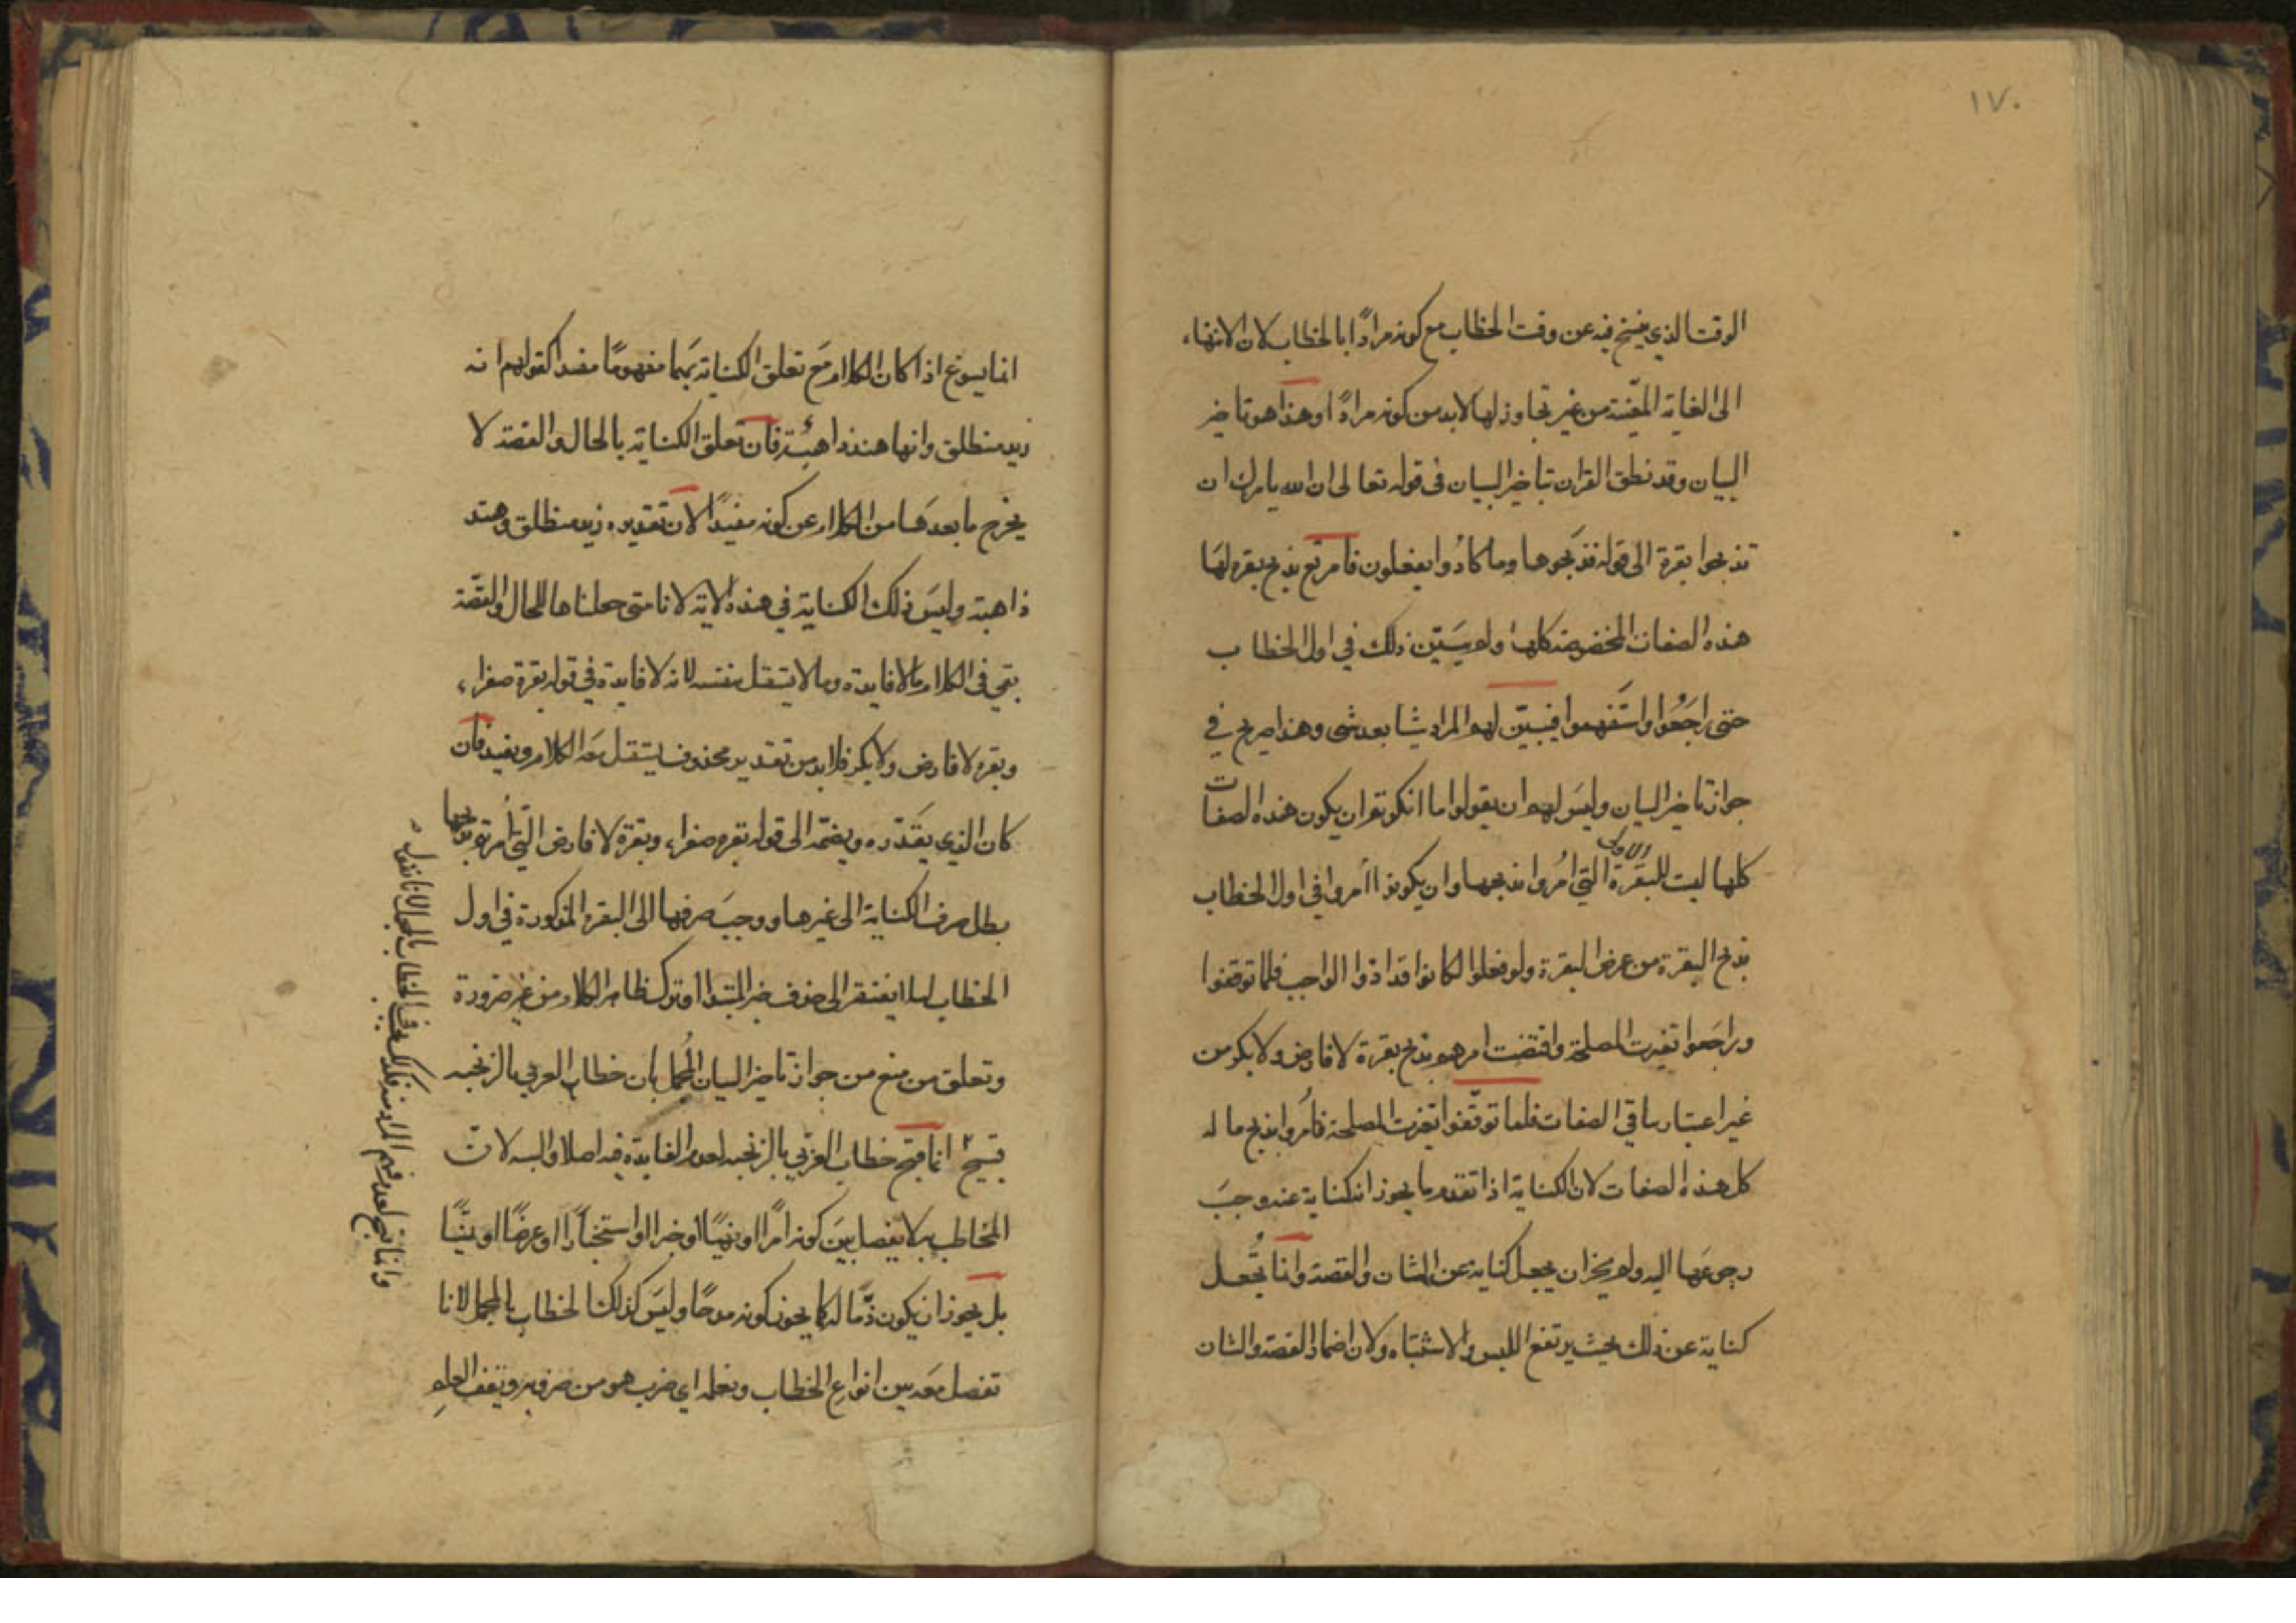 ١٧٠
الوقت الذي ينسخ فيه عن وقت الخطاب مع كونه مرادًا بالخطاب لان الانتهاء
الى الغاية المعيّنة من غير تجاوز لها لابد من كونه مرادًا وهذا هو تاخير
البيان وقد نطق القران بتاخير البيان في قوله تعالى ان الله يامرك ان
تذبحوا بقرة الى قوله فذبحوها وما كادُوا يفعلون فأمرتع بذبح بقره لهَا
هذه الصفات المخصوصة كلها ولم يبيّن ذلك في اول الخطاب
حتى راجَعُوا واستَفهموا فيبيّن لهم المراد شيا بعد شى وهذا صريح في
جواز تاخير البيان وليسَ لهم ان يقولوا ما انكرتم ان يكون هذه الصفات
كلها ليست للبقرة الاولى التي امُروا بذبحها وان يكونوا أمروا في اول الخطاب
بذبح البقرة من عرض البقرة ولو فعلوا لكانوا قد ادّوا الواجب فلما توقفوا
وراجَعوا تغيرت المصلحة واقتضت امرهم بذبح بقرة لا فارض ولا بكر من
غير اعتبار باقي الصفات فلما توقّفوا تغيرت المصلحة فأُمروا بذبح ما له
كل هذه الصفات لان الكناية اذا تقدم ما يجوز انه كناية عنه وجبَ
رجوعَها اليه ولم يجز ان يجعل كناية عن الشان والقصة وانما تُجعل
كناية عن ذلك بحيث يرتفع اللبس والاشتباه ولان اضمار القصة والشان
انما يسوغ اذا كان الكلام مَع تعلق الكناية بَهما مفهومًا مفيدا كقولهم انه
زيد منطلق وانها هند ذاهبة فأن تعلق الكناية بالحال والقصة لا
يخرج ما بعدهَا من الكلام عن كونه مفيدًا لان تقديره زيد منطلق وهند
ذاهبة وليسَ ذلك الكناية في هذه الاية لانا متى جعلناها للحال والقصّة
بقى في الكلام ما لا فايدة وما لا يستقل بنفسه لانه لا فايدة في قوله بقرة صفراء
وبقره لا فارض ولا بكر فلابد من تقدير محذوف ليستقل معَه الكلام ويفيد فان
كان الذي يقَدّره ويضمّه الى قوله بقره صفراء وبقرة لا فارض الّتي أُمرتم بذبحها
بطل صرف الكناية الى غيرها ووجبَ صرفها الى البقره المذكورة في اول
الخطاب ليلا يفتقر الى حذف خبر المبتدا او ترك ظاهر الكلام من غير ضرورة
وتعلق من منع من جواز تاخير البيان المُجمل بان خطاب العربي بالزنجيه
قبيح انما قبح خطاب العرَبي بالزنجيه لعدم الفايدة فيه اصلا والبسه لانّ
المخاطب به لا يفصل بيَن كونه امرًا او نهيًا او خبرا او استخبارًا او عرضًا او
بل يجوز ان يكون ذمّا له كما يجوز كونه مدحًا وليسَ كذلك الخطاب بالمجمل لانا
نفصل معَه بين انواع الخطاب ونعلم اي ضرب هو من ضروبه ويقف العلم